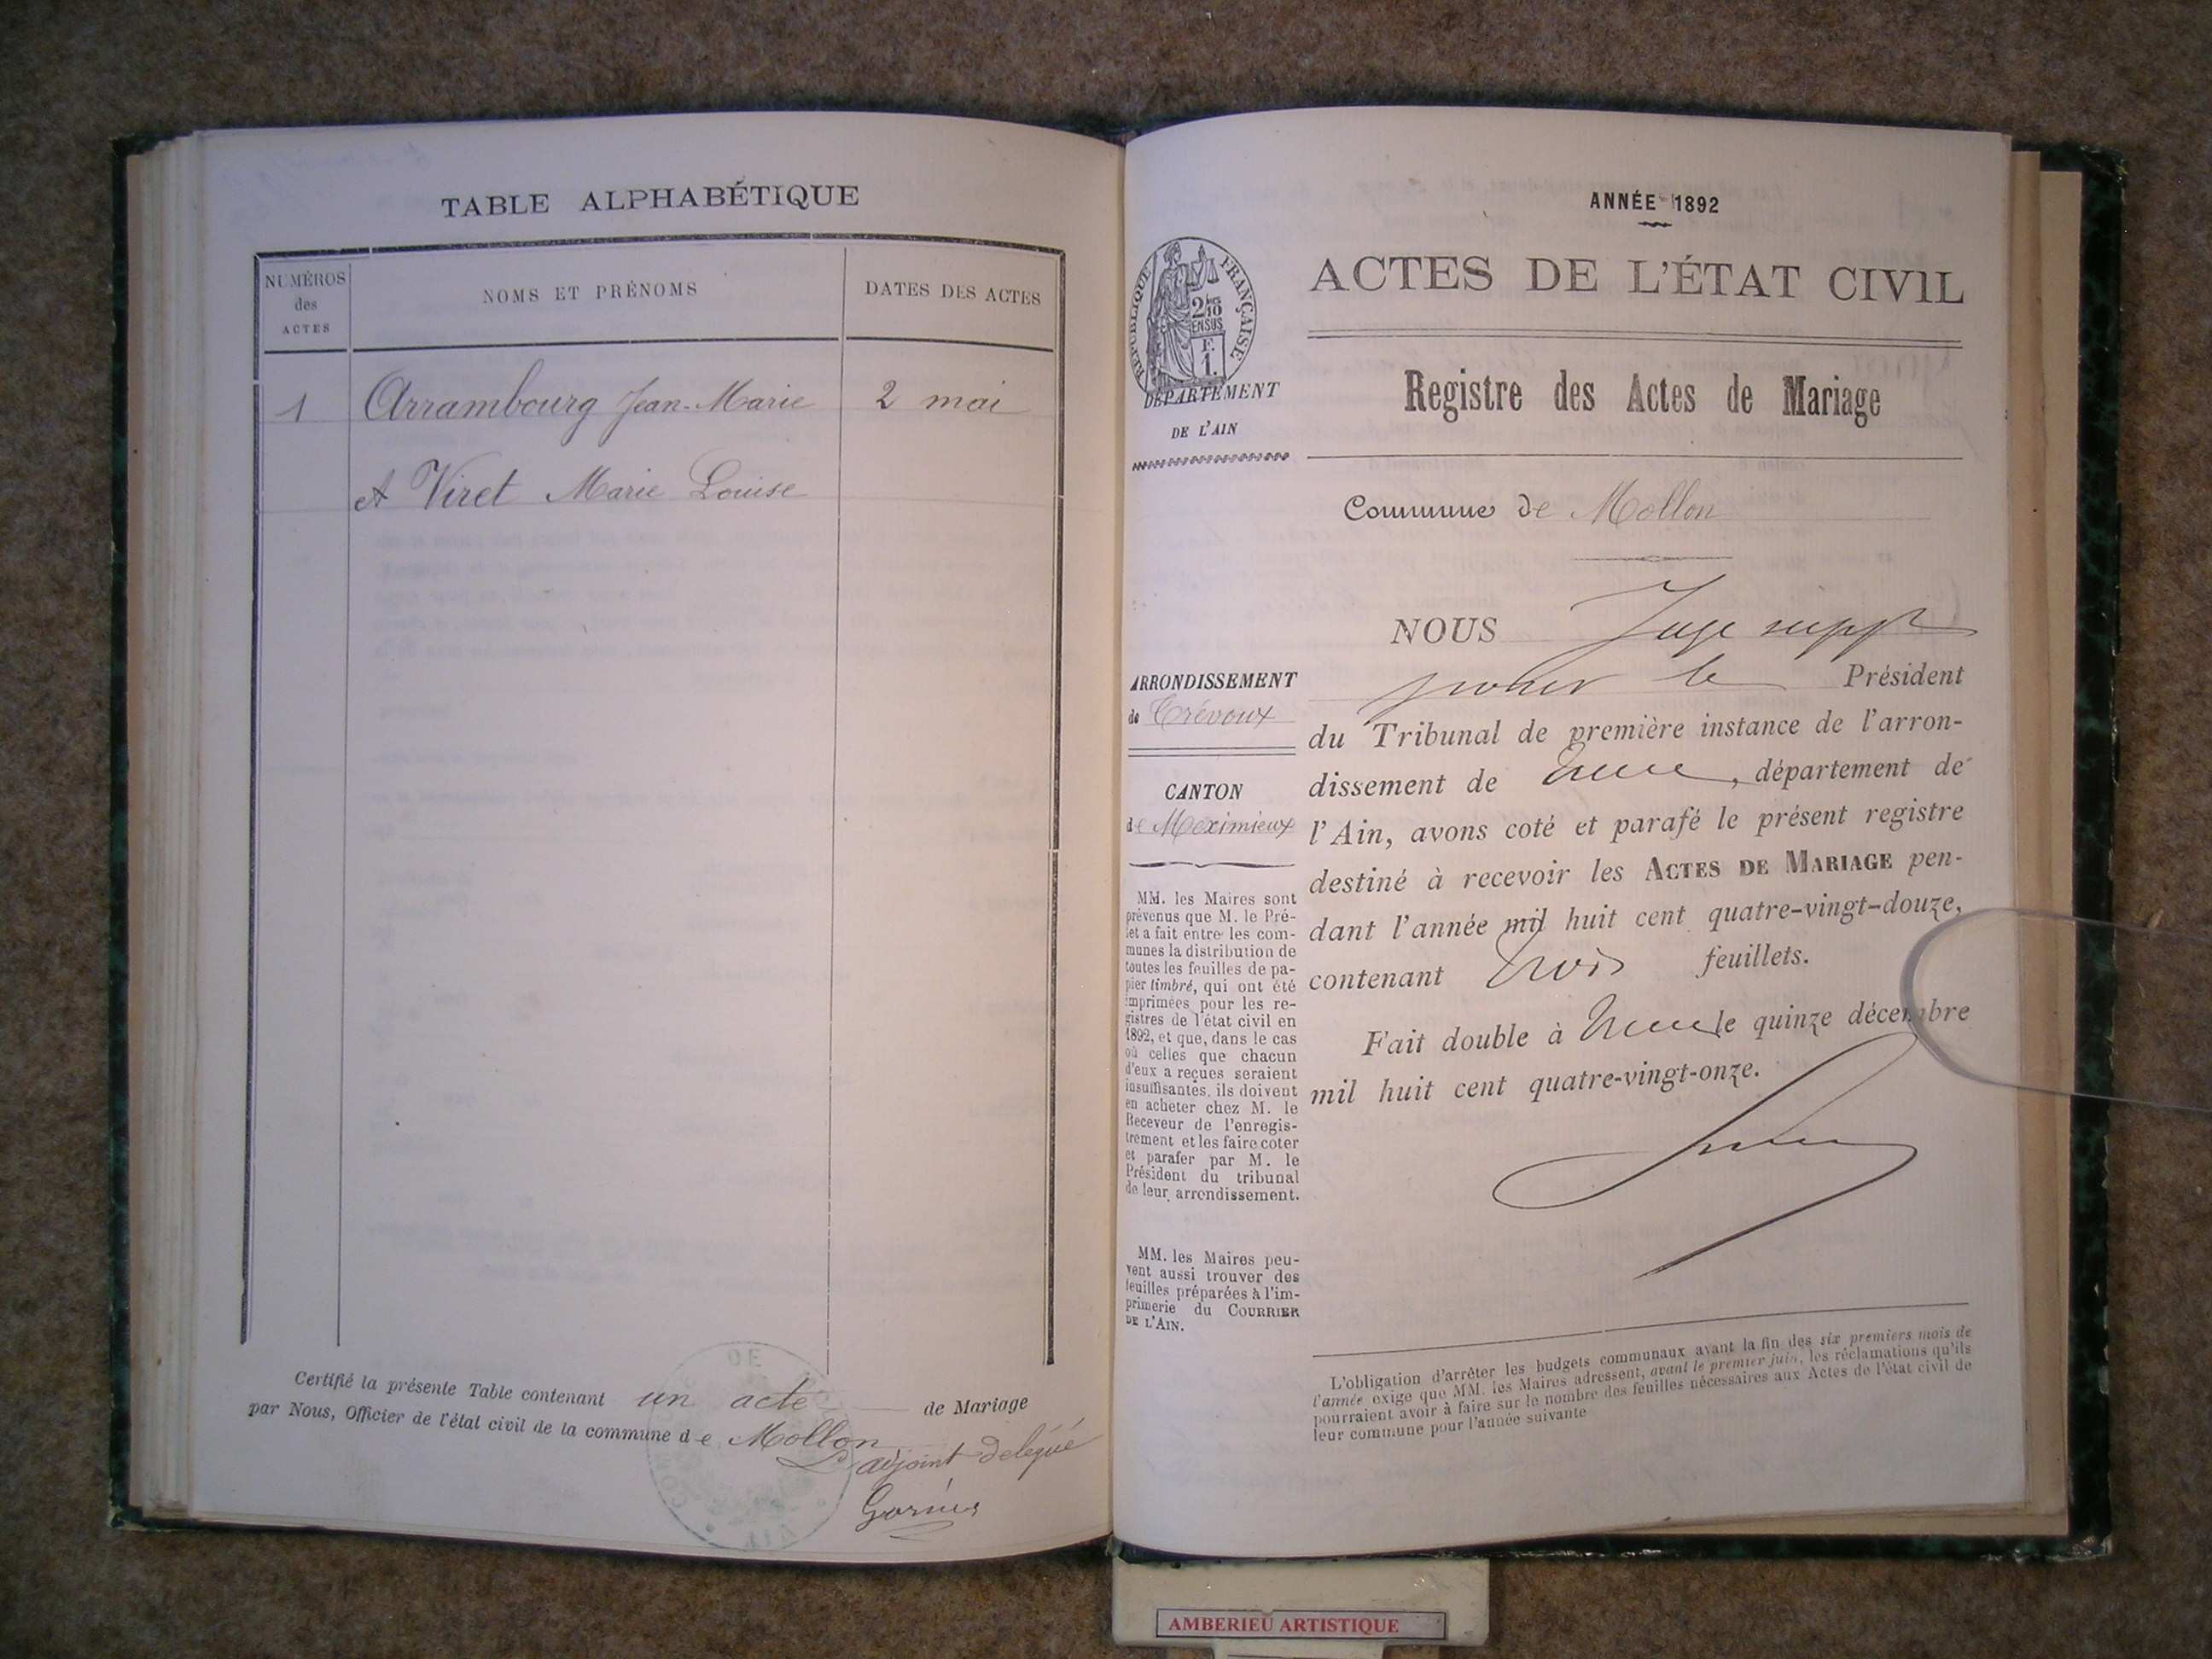 TABLE ALPHABÉTIQUE
NUMÉROS
des
ACTES
NOMS ET PRÉNOMS
DATES DES ACTES
1 Arrambourg Jean-Marie 2 mai
et Viret Marie Louise
Certifié la présente Table contenant un acte de Mariage
par Nous, Officier de l'état civil de la commune de Mollon
adjoint delegué
ANNÉE 1892
ACTES DE L'ÉTAT CIVIL
RÉPUBLIQUE FRANÇAISE
2/10
EN SUS
F.
1.
DÉPARTEMENT
DE L'AIN
Registre des Actes de Mariage
Commune de Mollon
ARRONDISSEMENT
de Trévoux
CANTON
de Meximieux
MM. les Maires sont
prévenus que M. le Pré-
fet a fait entre les com-
munes la distribution de
toutes les feuilles de pa-
pier timbré, qui ont été
imprimées pour les re-
gistres de l'état civil en
1892, et que, dans le cas
où celles que chacun
d'eux a reçues seraient
insuffisantes, ils doivent
en acheter chez M. le
Receveur de l'enregis-
trement et les faire coter
et parafer par M. le
Président du tribunal
de leur arrondissement.
MM. les Maires peu-
vent aussi trouver des
feuilles préparées à l'im-
primerie du COURRIER
DE L'AIN.
NOUS Juge suppt
pour le Président
du Tribunal de première instance de l'arron-
dissement de , département de
l'Ain, avons coté et parafé le présent registre
destiné à recevoir les ACTES DE MARIAGE pen-
dant l'année mil huit cent quatre-vingt-douze,
contenant trois feuillets.
Fait double à le quinze décembre
mil huit cent quatre-vingt-onze.
L'obligation d'arrêter les budgets communaux avant la fin des six premiers mois de
l'année exige que MM. les Maires adressent, avant le premier juin, les réclamations qu'ils
pourraient avoir à faire sur le nombre des feuilles nécessaires aux Actes de l'état civil de
leur commune pour l'année suivante
AMBERIEU ARTISTIQUE